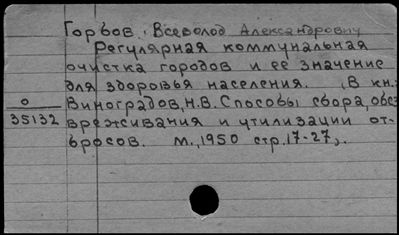 Горбов, Всеволод Александрович
Регулярная коммунальная
очистка городов и ее значение
для здоровья населения. (В кн.:
О
35132
Виноградов, Н.В. Способы сбора, обез
вреживания и утилизации от-
бросов. М., 1950 стр. 17-27,.